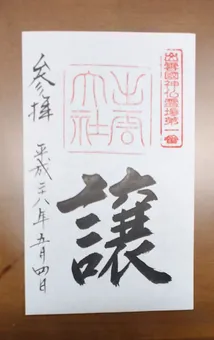 出雲國神仏霊場第一番
出雲大社
譲
参拝 平成二十八年五月四日